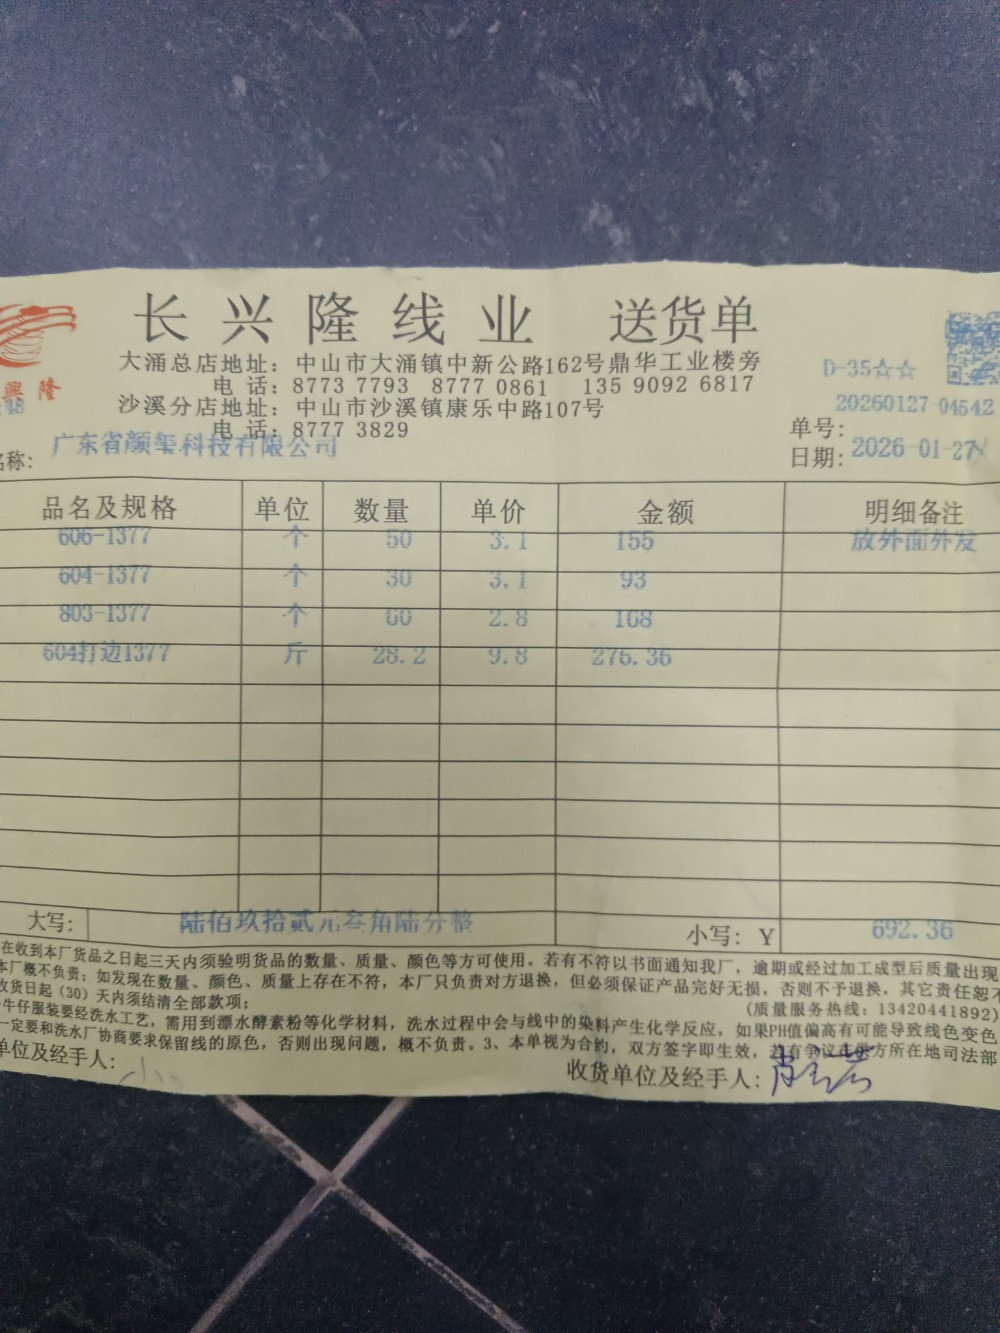 长兴隆线业 送货单
興隆
大涌总店地址：中山市大涌镇中新公路162号鼎华工业楼旁
电 话：8773 7793 8777 0861 135 9092 6817
沙溪分店地址：中山市沙溪镇康乐中路107号
电 话：8777 3829
D-35☆☆
:48
单号：20260127-04542
名称：广东省颜玺科技有限公司
日期：2026-01-27
品名及规格 单位 数量 单价 金额 明细备注
606-1377 个 50 3.1 155 放外面外发
604-1377 个 30 3.1 93
803-1377 个 60 2.8 168
604打边1377 斤 28.2 9.8 276.36
大写：陆佰玖拾贰元叁角陆分整 小写：Y 692.36
在收到本厂货品之日起三天内须验明货品的数量、质量、颜色等方可使用。若有不符以书面通知我厂，逾期或经过加工成型后质量出现
本厂概不负责；如发现在数量、颜色、质量上存在不符，本厂只负责对方退换，但必须保证产品完好无损，否则不予退换，其它责任恕不
收货日起（30）天内须结清全部款项； (质量服务热线：13420441892)
牛仔服装要经洗水工艺，需用到漂水酵素粉等化学材料，洗水过程中会与线中的染料产生化学反应，如果PH值偏高有可能导致线色变色
一定要和洗水厂协商要求保留线的原色，否则出现问题，概不负责。3、本单视为合约，双方签字即生效，若有争议在供方所在地司法部
单位及经手人： 收货单位及经手人：